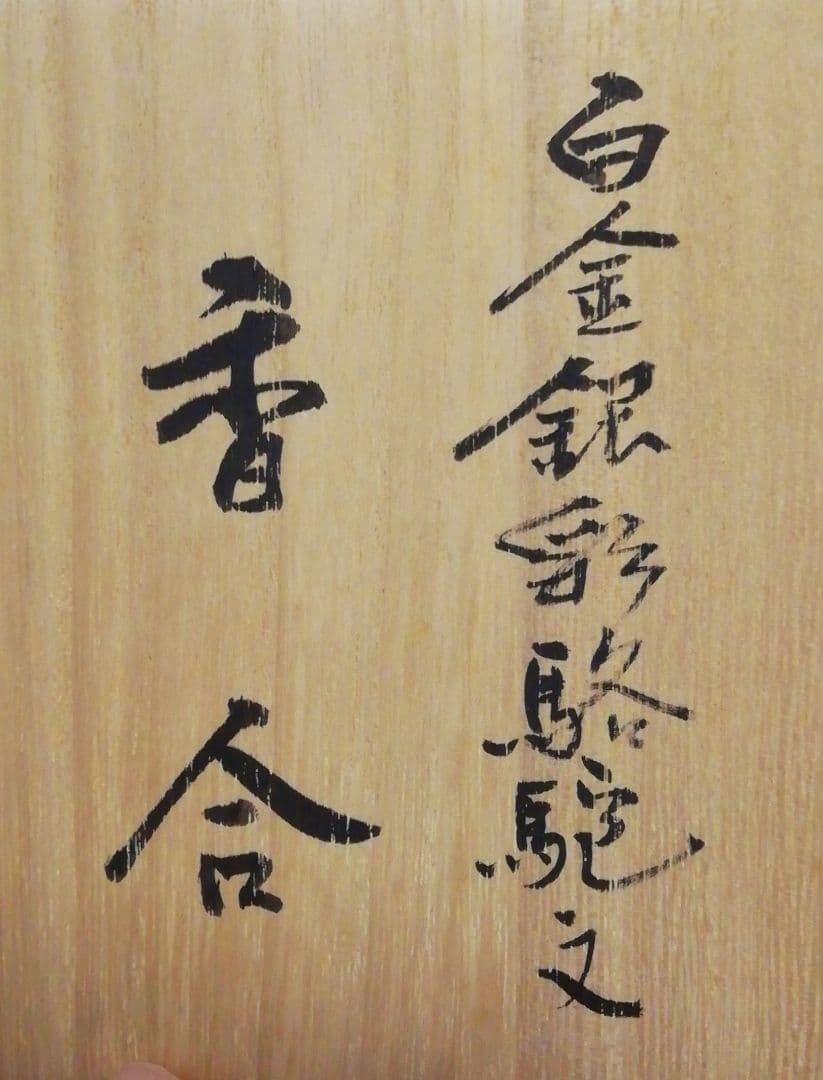 白金銀彩駱駝文
香合